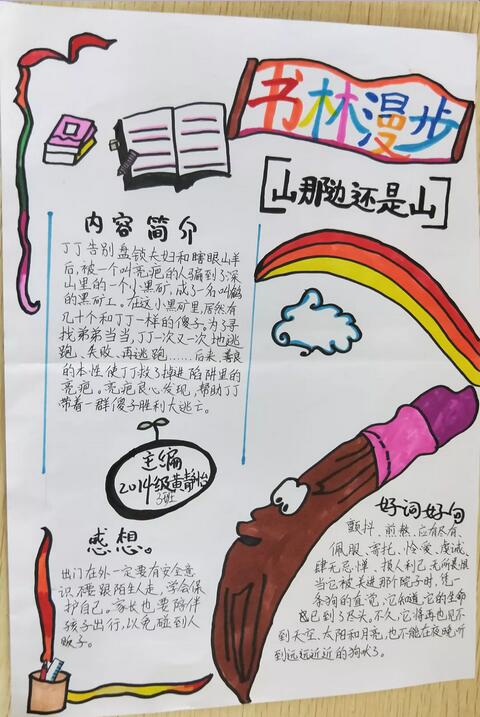 书林漫步
[山那边还是山]
内容简介
丁丁告别盘锁夫妇和瞎眼山羊
后,被一个叫亮疤的人骗到了深
山里的一个小黑矿,成了一名叫鹤
的黑矿工。在这小黑矿里,居然有
几十个和丁丁一样的傻子。为了寻
找弟弟当当,丁丁一次又一次地逃
跑、失败、再逃跑……后来,善良
的本性使丁丁救了掉进陷阱里的
亮疤。亮疤良心发现,帮助丁丁
带着一群傻子胜利大逃亡。
主编
2014级黄静怡
3班
感想。
出门在外一定要有安全意
识,不要跟陌生人走,学会保
护自己。家长也要陪伴
孩子出行,以免碰到人
贩子。
好词好句
颤抖、煎熬、应有尽有、
佩服、寄托、怜爱、虔诚、
肆无忌惮、损人利己、无所畏惧
当它被关进那院子时,凭一
条狗的直觉,它知道,它的生命
已到了尽头,不久,它将再也见不
到天空、太阳和月亮,也不能在夜晚听
到远远近近的狗吠了。